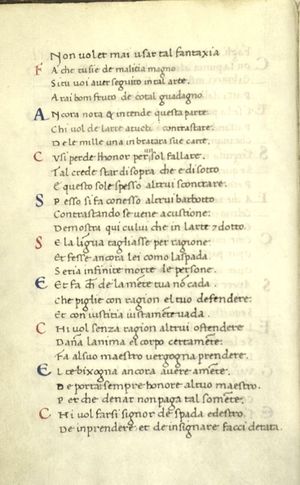 Non voler mai usar tal fantaxia
F A che tu sie de malitia magno
Si tu voi aver seguito in tal arte,
A rai bon fruto de cotal guadagno.
A Ncora nota & intende questa parte
Chi vol de larte a tuoti contrastare.
De le mille una imbratara sue carte.
C Usi perde lhonor per un sol fallare.
Tal crede star di sopra che e di sotto
E questo sole spesso altrui scontrare.
S P esso si fa con esso altrui barbotto
Contrastando se vene a custione:
Demostra qui cului che in larte e dotto.
S E la lingua tagliasse per ragione:
Et fesse ancora lei como la spada.
Seria infinite morte le persone.
E t fa che de la mete tua no cada.
Che piglie con ragion el tuo defendere:
Et con iustitia iustamēte vada.
C Hi vol senza ragion altrui ofendere
Danā lanima el corpo certamēte:
Fa al suo maestro vergogna prendere.
E L te bixogna ancora avere amēte.
De portar sempre honore al tuo maestro.
Per che denar non paga tal somēte.
C Hi vol farsi signor de spada e destro.
De inprendere et de insignare facci detata.